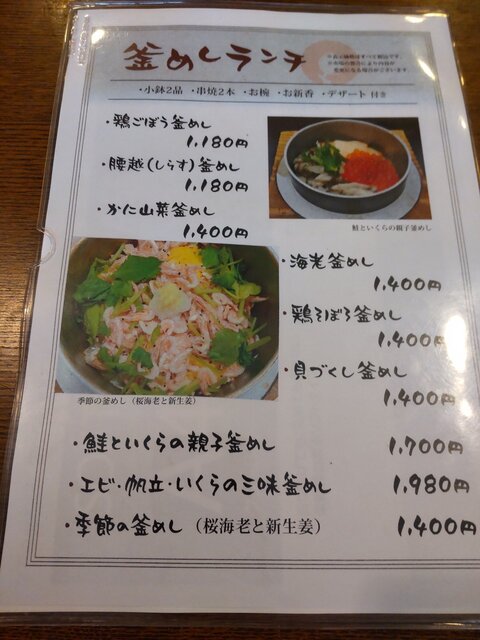 釜めしランチ
※表示価格はすべて税込です。
※市場の都合により内容が
変更になる場合がございます。
・小鉢2品 ・串焼2本 ・お椀 ・お新香 ・デザート 付き
・鶏ごぼう釜めし
1,180円
・腰越(しらす)釜めし
1,180円
・かに山菜釜めし
1,400円
鮭といくらの親子釜めし
・海老釜めし
1,400円
・鶏そぼろ釜めし
1,400円
・貝づくし釜めし
1,400円
季節の釜めし（桜海老と新生姜）
・鮭といくらの親子釜めし 1,700円
・エビ・帆立・いくらの三味釜めし 1,980円
・季節の釜めし（桜海老と新生姜） 1,400円